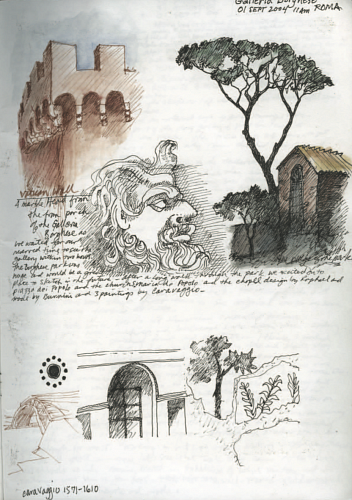 Galleria Borghese
01 SEPT 2004 11am ROMA
Vatican Wall
A marble Head from
the front porch
of the Galleria
Borghese as
we waited for our
reserved time to see the
gallery within two hours
The Borghese park is
huge and would be a great
place to sketch in the future - after a long walk through the park we exited to
piazza del Popolo and the church S. Maria del Popolo and the chapel design by Raphael and
mods by Bernini and 3 paintings by Caravaggio.
caravaggio 1571-1610